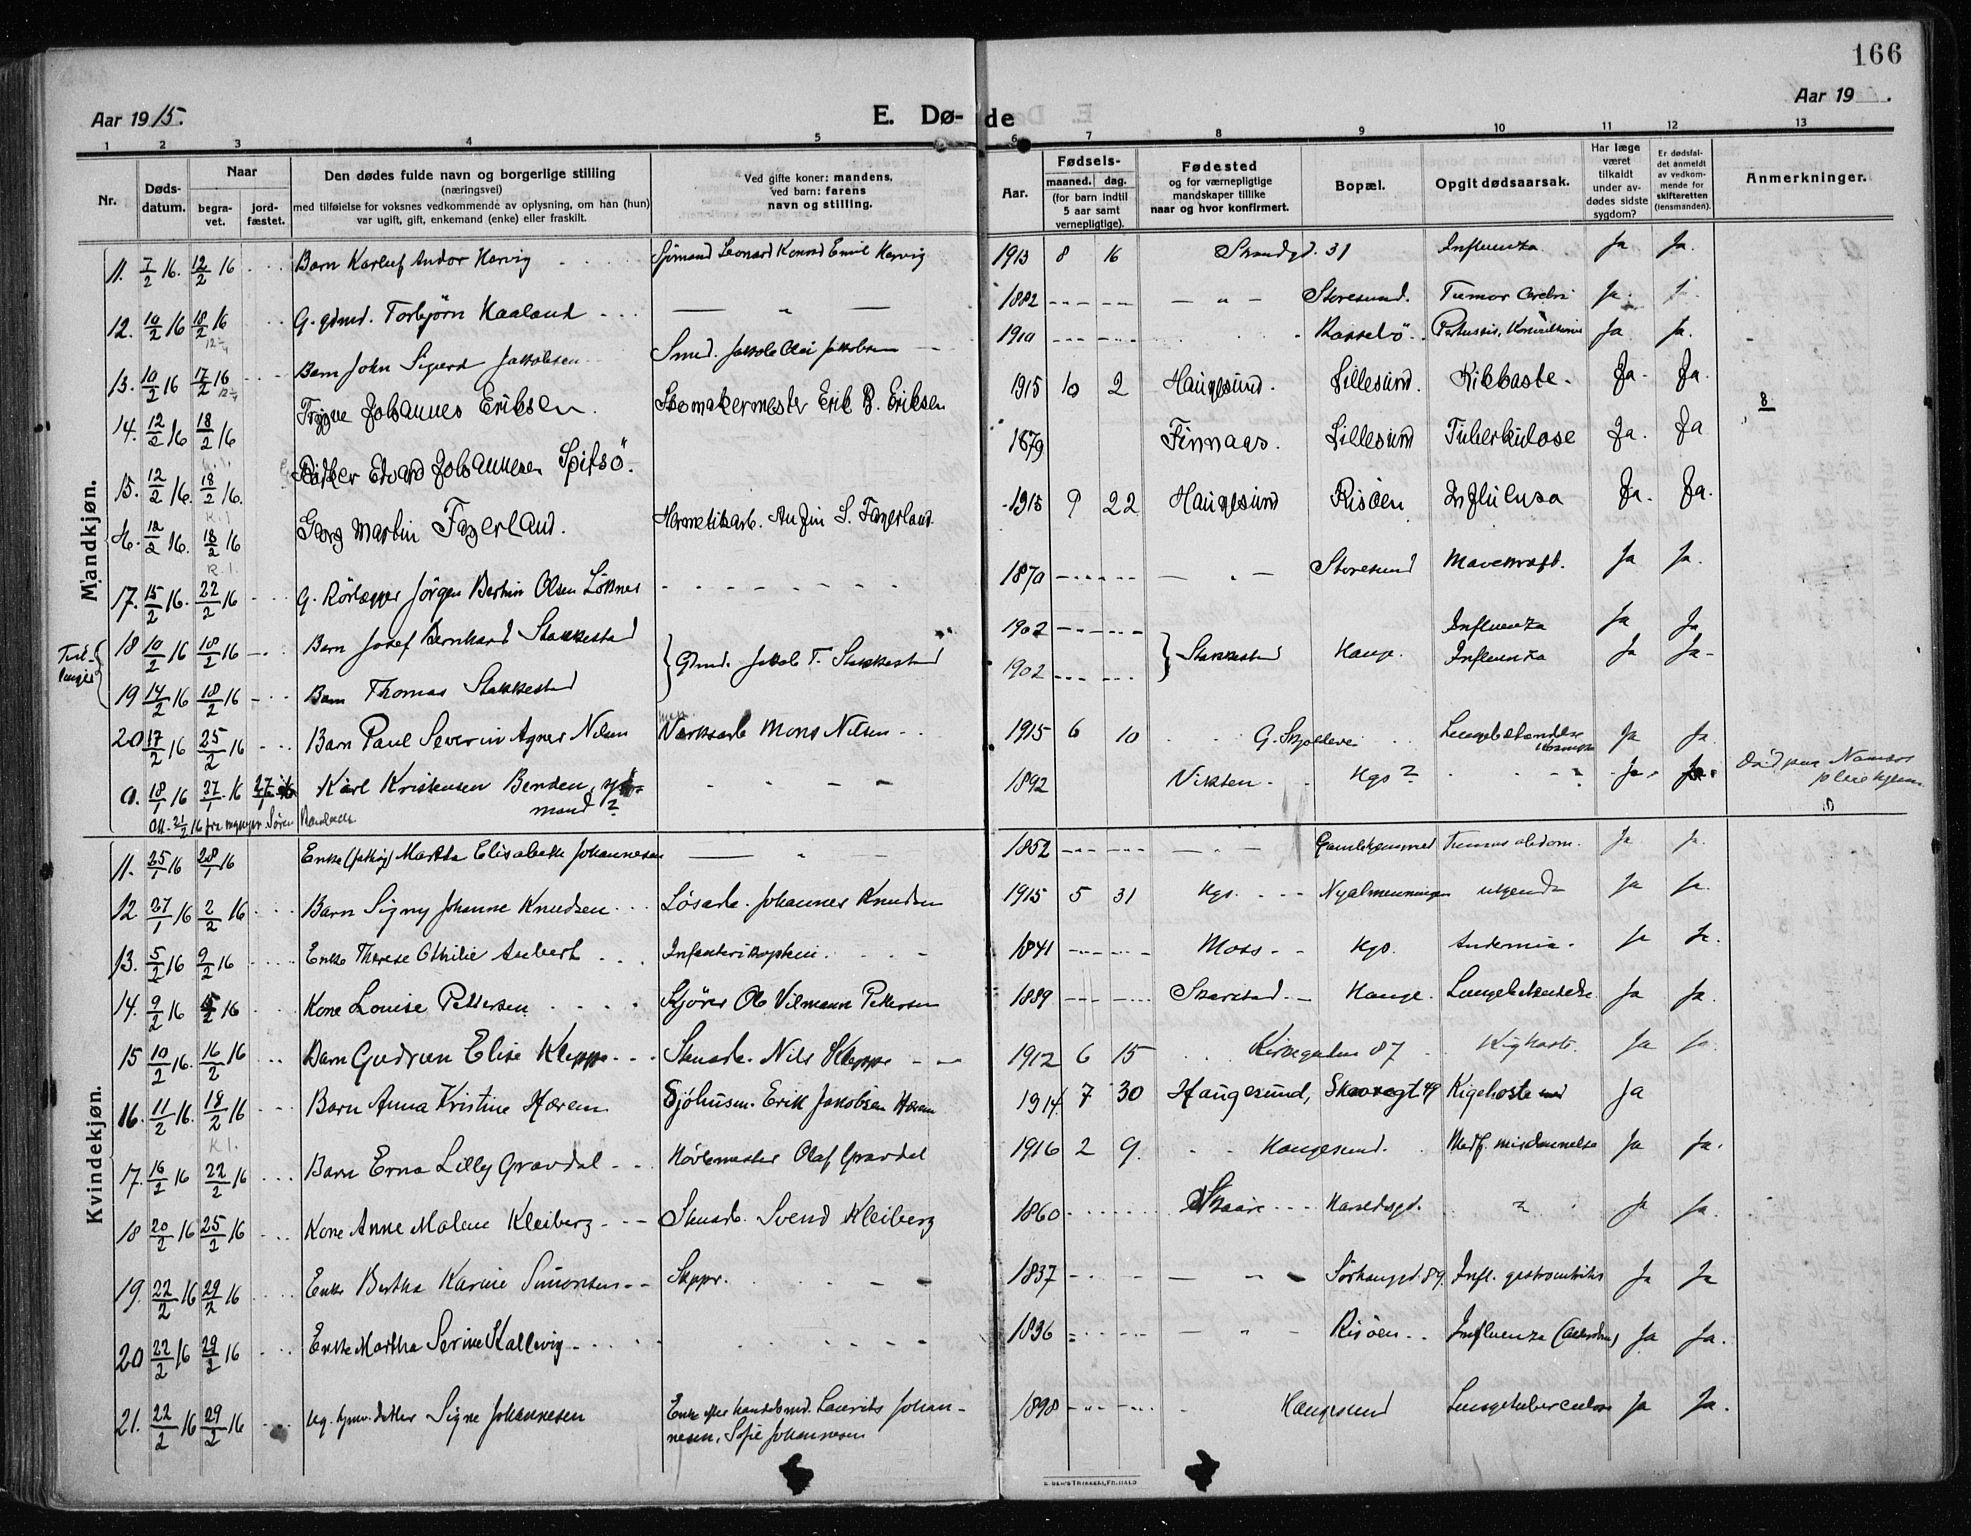 166
Aar 1915.
E. Dø-
de
Aar 19 .
1 2 3 4 5 6 7 8 9 10 11 12 13
Nr.
Døds-
datum.
Naar
begra-
vet.
jord-
fæstet.
Den dødes fulde navn og borgerlige stilling
(næringsvei)
med tilføielse for voksnes vedkommende av oplysning, om han (hun)
var ugift, gift, enkemand (enke) eller fraskilt.
Ved gifte koner: mandens,
ved barn: farens
navn og stilling.
Aar.
Fødsels-
maaned. dag.
(for barn indtil
5 aar samt
vernepligtige).
Fødested
og for værnepligtige
mandskaper tillike
naar og hvor konfirmert.
Bopæl.
Opgit dødsaarsak.
Har læge
været
tilkaldt
under av-
dødes sidste
sygdom?
Er dødsfal-
det anmeldt
av vedkom-
mende for
skifteretten
(lensmanden).
Anmerkninger.
Mandkjøn.
11. 7/2 16. 12/2 16 Barn Andor Harvig Sjömand Leonard Konrad Emil Harvig 1913 8 16 Strandgd. 31 Influenza Ja Ja.
12. 10/2 16 18/2 16 G. gdmd. Torbjörn Haaland — " — 1882 — " — Storesund. Tumor Cerebri Ja.
13. 10/2 16 17/2 16 Barn John Sigurd Jakobsen Smed. Jakob Olai Jakobsen 1910 Ja Ja.
14. 12/2 16 18/2 16 Trygve Johannes Eriksen. Skomakermester Erik B. Eriksen 1915 10 2 Haugesund. Lillesund. Kikhoste. Ja. Ja. 8
15. 12/2 16. 18/2 16. Edvard Johannesen Spitsö. 1879 Finnaas. Lillesund Tuberkulose Ja. Ja
16. 12/2 16. 18/2 16 Georg Martin Fagerland. Hermetikarb. Anfin S. Fagerland. 1915 9 22 Haugesund Risöen Influensa Ja. Ja.
17. 15/2 16. 22/2 16 G. Rörlægger Jörgen Bertin Olsen 1870 — " — Storesund Mavekræft. Ja Ja.
18 10/2 16 18/2 16 Barn Josef Bernhard Stakkestad } Gdmd. Jakob T. Stakkestad 1902 } Stakkestad Hauge. Influenza Ja Ja
19 14/2 16 18/2 16 Barn Thomas Stakkestad 1902 Influenza Ja Ja
20 17/2 16 25/2 16 Barn Paul Severin Agner Nilsen Verksarb Mons Nilsen 1915 6 10 G. Skjoldevei Ja Ja
a. 18/1 16 27/1 16 27/1 16 Karl Kristensen 1892 Hgs ? Ja. Ja.
mand ?
Kvindekjøn.
11. 25/1 16 28/1 16 Enke Martha Elisabeth Johannesen — " — 1852 — " — Ja Ja.
12 27/1 16 2/2 16 Barn Signy Johanne Knudsen Løsarb. Johannes Knudsen 1915 5 31 Hgs. Nyalmenningen ukjendt Ja Ja.
13. 5/2 16 9/2 16 Enke Therese Othilie Aubert Infanterikaptein. 1841 Moss Hgs. Ja Ja.
14. 9/2 16 15/2 16 Kone Louise Pettersen Kjörer Ole Vilmann Pettersen 1889 Hauge. Lungebetændelse Ja Ja.
15 10/2 16. 16/2 16 Barn Gudrun Elise Kleppe Stenarb. Nils Kleppe 1912 6 15 Kirkegaten 87 Kighoste. Ja Ja.
16. 11/2 16. 18/2 16 Barn Anna Kristine Hærem Sjöhusm. Erik Jakobsen Hærem 1914 7 30 Haugesund, Skaaregt 49 Kigehoste Ja
17. 16/2 16 22/2 16 Barn Erna Lilly Gravdal Hövlemester Olaf Gravdal 1916 2 9. Haugesund. Medf. misdannelse Ja Ja.
18 20/2 16 25/2 16 Kone Anne Malene Kleiberg Stenarb. Svend Kleiberg 1860 Skaare Haraldsgd. ? Ja Ja.
19. 22/2 16 29/2 16 Enke Bertha Karine Simonsen Skppr. 1837 — " — Sörhauggd. 89. Infl. Ja Ja
20 22/2 16 29/2 16 Enke Martha Serine Kallevig 1836 — " — Risöen Influenza Ja Ja.
21. 22/2 16 29/2 16 Signe Johannesen Enke efter handelsmd. Laurits Johan-
nesen, Sofie Johannesen 1898 Haugesund Lungetuberculose Ja Ja.